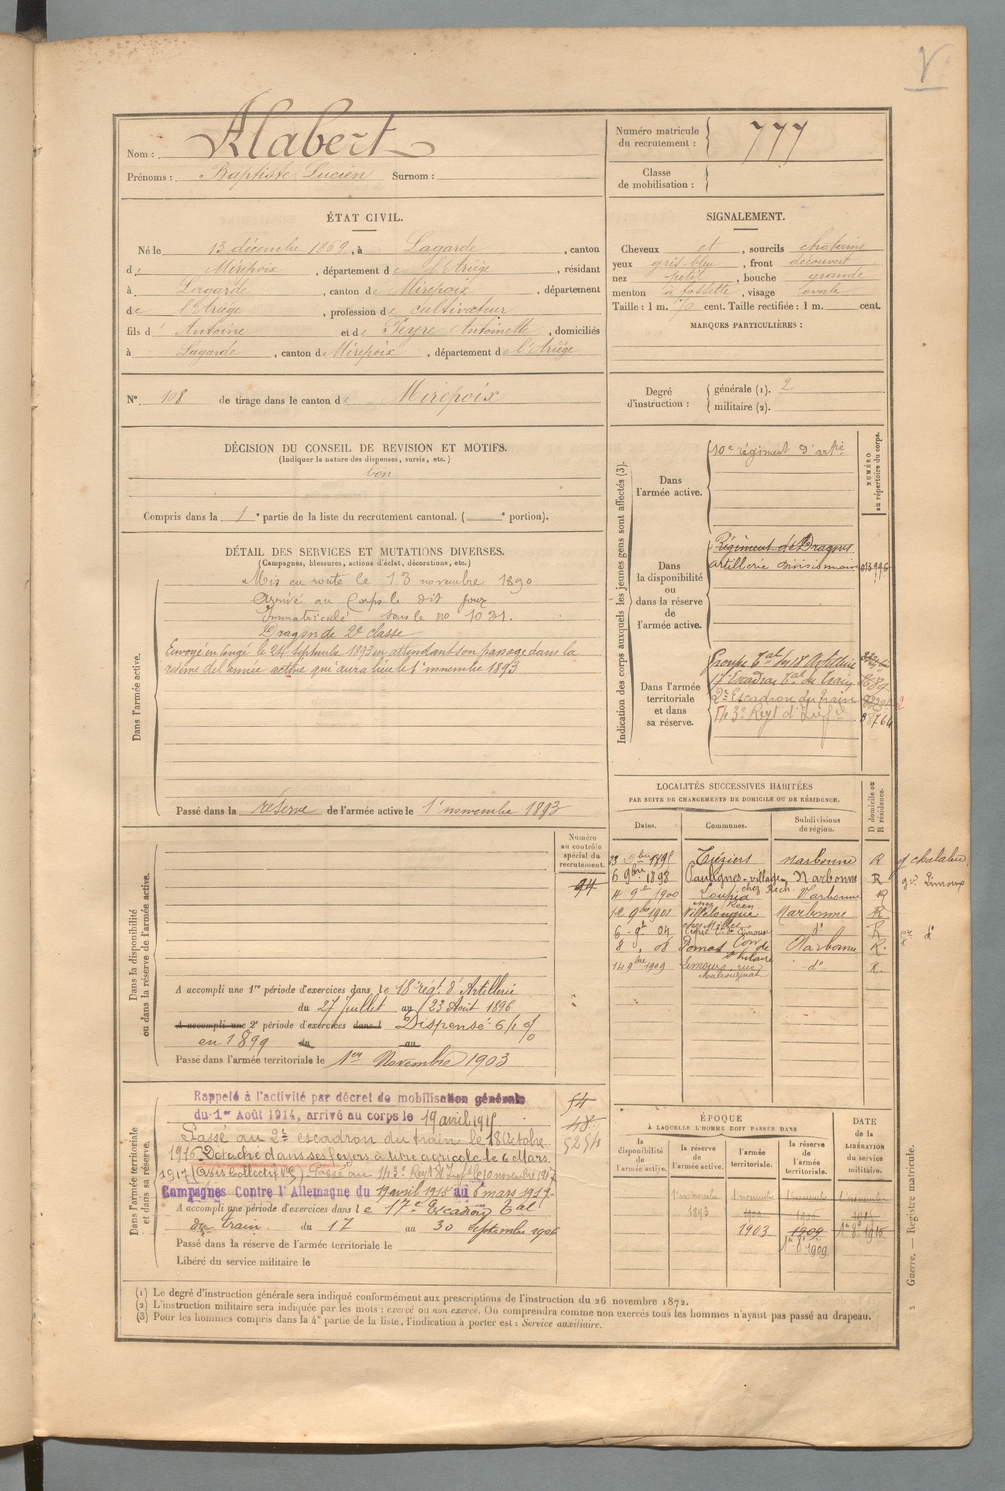 V
Nom : Alabert
Prénoms : Baptiste Lucien Surnom :
Numéro matricule
du recrutement : 777
Classe
de mobilisation :
ÉTAT CIVIL.
Né le 13 décembre 1869, à Lagarde, canton
de Mirepoix, département de l'Ariège, résidant
à Lagarde, canton de Mirepoix, département
de l'Ariège, profession de cultivateur
fils d' Antoine et de Peyre Antoinette, domiciliés
à Lagarde, canton de Mirepoix, département de l'Ariège
SIGNALEMENT.
Cheveux et, sourcils châtains
yeux gris-bleu, front découvert
nez petit, bouche grande
menton à fossette, visage ovale
Taille : 1 m. 70 cent. Taille rectifiée : 1 m. cent.
MARQUES PARTICULIÈRES :
N° 108 de tirage dans le canton de Mirepoix
Degré
d'instruction :
générale (1). 2
militaire (2).
DÉCISION DU CONSEIL DE REVISION ET MOTIFS.
(Indiquer la nature des dispenses, sursis, etc.)
bon
Compris dans la 1e partie de la liste du recrutement cantonal. ( e portion).
DÉTAIL DES SERVICES ET MUTATIONS DIVERSES.
(Campagnes, blessures, actions d'éclat, décorations, etc.)
Dans l'armée active.
Mis en route le 13 novembre 1890
Arrivé au Corps le dit jour
Immatriculé sous le no 1031.
Dragon de 2e classe
Envoyé en congé le 24 septembre 1893 en attendant son passage dans la
réserve de l'armée active qui aura lieu le 1er novembre 1893
Passé dans la réserve de l'armée active le 1er novembre 1893
Indication des corps auxquels les jeunes gens sont affectés (3).
NUMÉRO
au répertoire du corps.
Dans
l'armée active.
10e régiment d'artie
Dans
la disponibilité
ou
dans la réserve
de
l'armée active.
Régiment de Dragons
artillerie
Dans l'armée
territoriale
et dans
sa réserve.
Groupe tal du 18e Artillerie
17e Escadron tal du train
2e Escadron du train
143e Regt d'Infie
LOCALITÉS SUCCESSIVES HABITÉES
PAR SUITE DE CHANGEMENTS DE DOMICILE OU DE RÉSIDENCE.
Dates. Communes. Subdivisions de région. D domicile ou R résidence.
Tréziers Narbonne R
6 9bre 1898 Pauligne, village Narbonne R
9bre 1900 Loupia Narbonne R
9bre 1901 Villelongue Narbonne R
6 04 do R
8 08 Pomas Narbonne R.
14 9bre 1909 Limoux, rue do R.
Dans la disponibilité
ou dans la réserve de l'armée active.
Numéro
au contrôle
spécial du
recrutement.
94
A accompli une 1re période d'exercices dans le 18e régt d'Artillerie
du 27 Juillet au 23 Août 1896
A accompli une 2e période d'exercices dans l Dispensé
en 1899 du au
Passé dans l'armée territoriale le 1er Novembre 1903
Dans l'armée territoriale
et dans sa réserve.
Rappelé à l'activité par décret de mobilisation générale
du 1er Août 1914, arrivé au corps le 19 avril 1915
Passé au 2e escadron du train le 18 Octobre
1916 Détaché dans ses foyers à titre agricole le 6 Mars
1917 Passé au 143e Regt d'Infie le 10 novembre 1917
Campagnes Contre l'Allemagne du 19 avril 1915 au 6 mars 1917
A accompli une période d'exercices dans le 17e Escadron tal
du train du 17 au 30 Septembre 1906
Passé dans la réserve de l'armée territoriale le
Libéré du service militaire le
54
48
5254
ÉPOQUE
À LAQUELLE L'HOMME DOIT PASSER DANS
la disponibilité de l'armée active.
la réserve de l'armée active.
l'armée territoriale.
la réserve de l'armée territoriale.
DATE
de la
LIBÉRATION
du service
militaire.
1er novembre 1893
1er novembre 1903
1er novembre 1909
1er 8bre 1909
1er novembre
1er 8bre 1915
(1) Le degré d'instruction générale sera indiqué conformément aux prescriptions de l'instruction du 26 novembre 1872.
(2) L'instruction militaire sera indiquée par les mots : exercé ou non exercé. On comprendra comme non exercés tous les hommes n'ayant pas passé au drapeau.
(3) Pour les hommes compris dans la 4e partie de la liste, l'indication à porter est : Service auxiliaire.
Guerre. — Registre matricule.